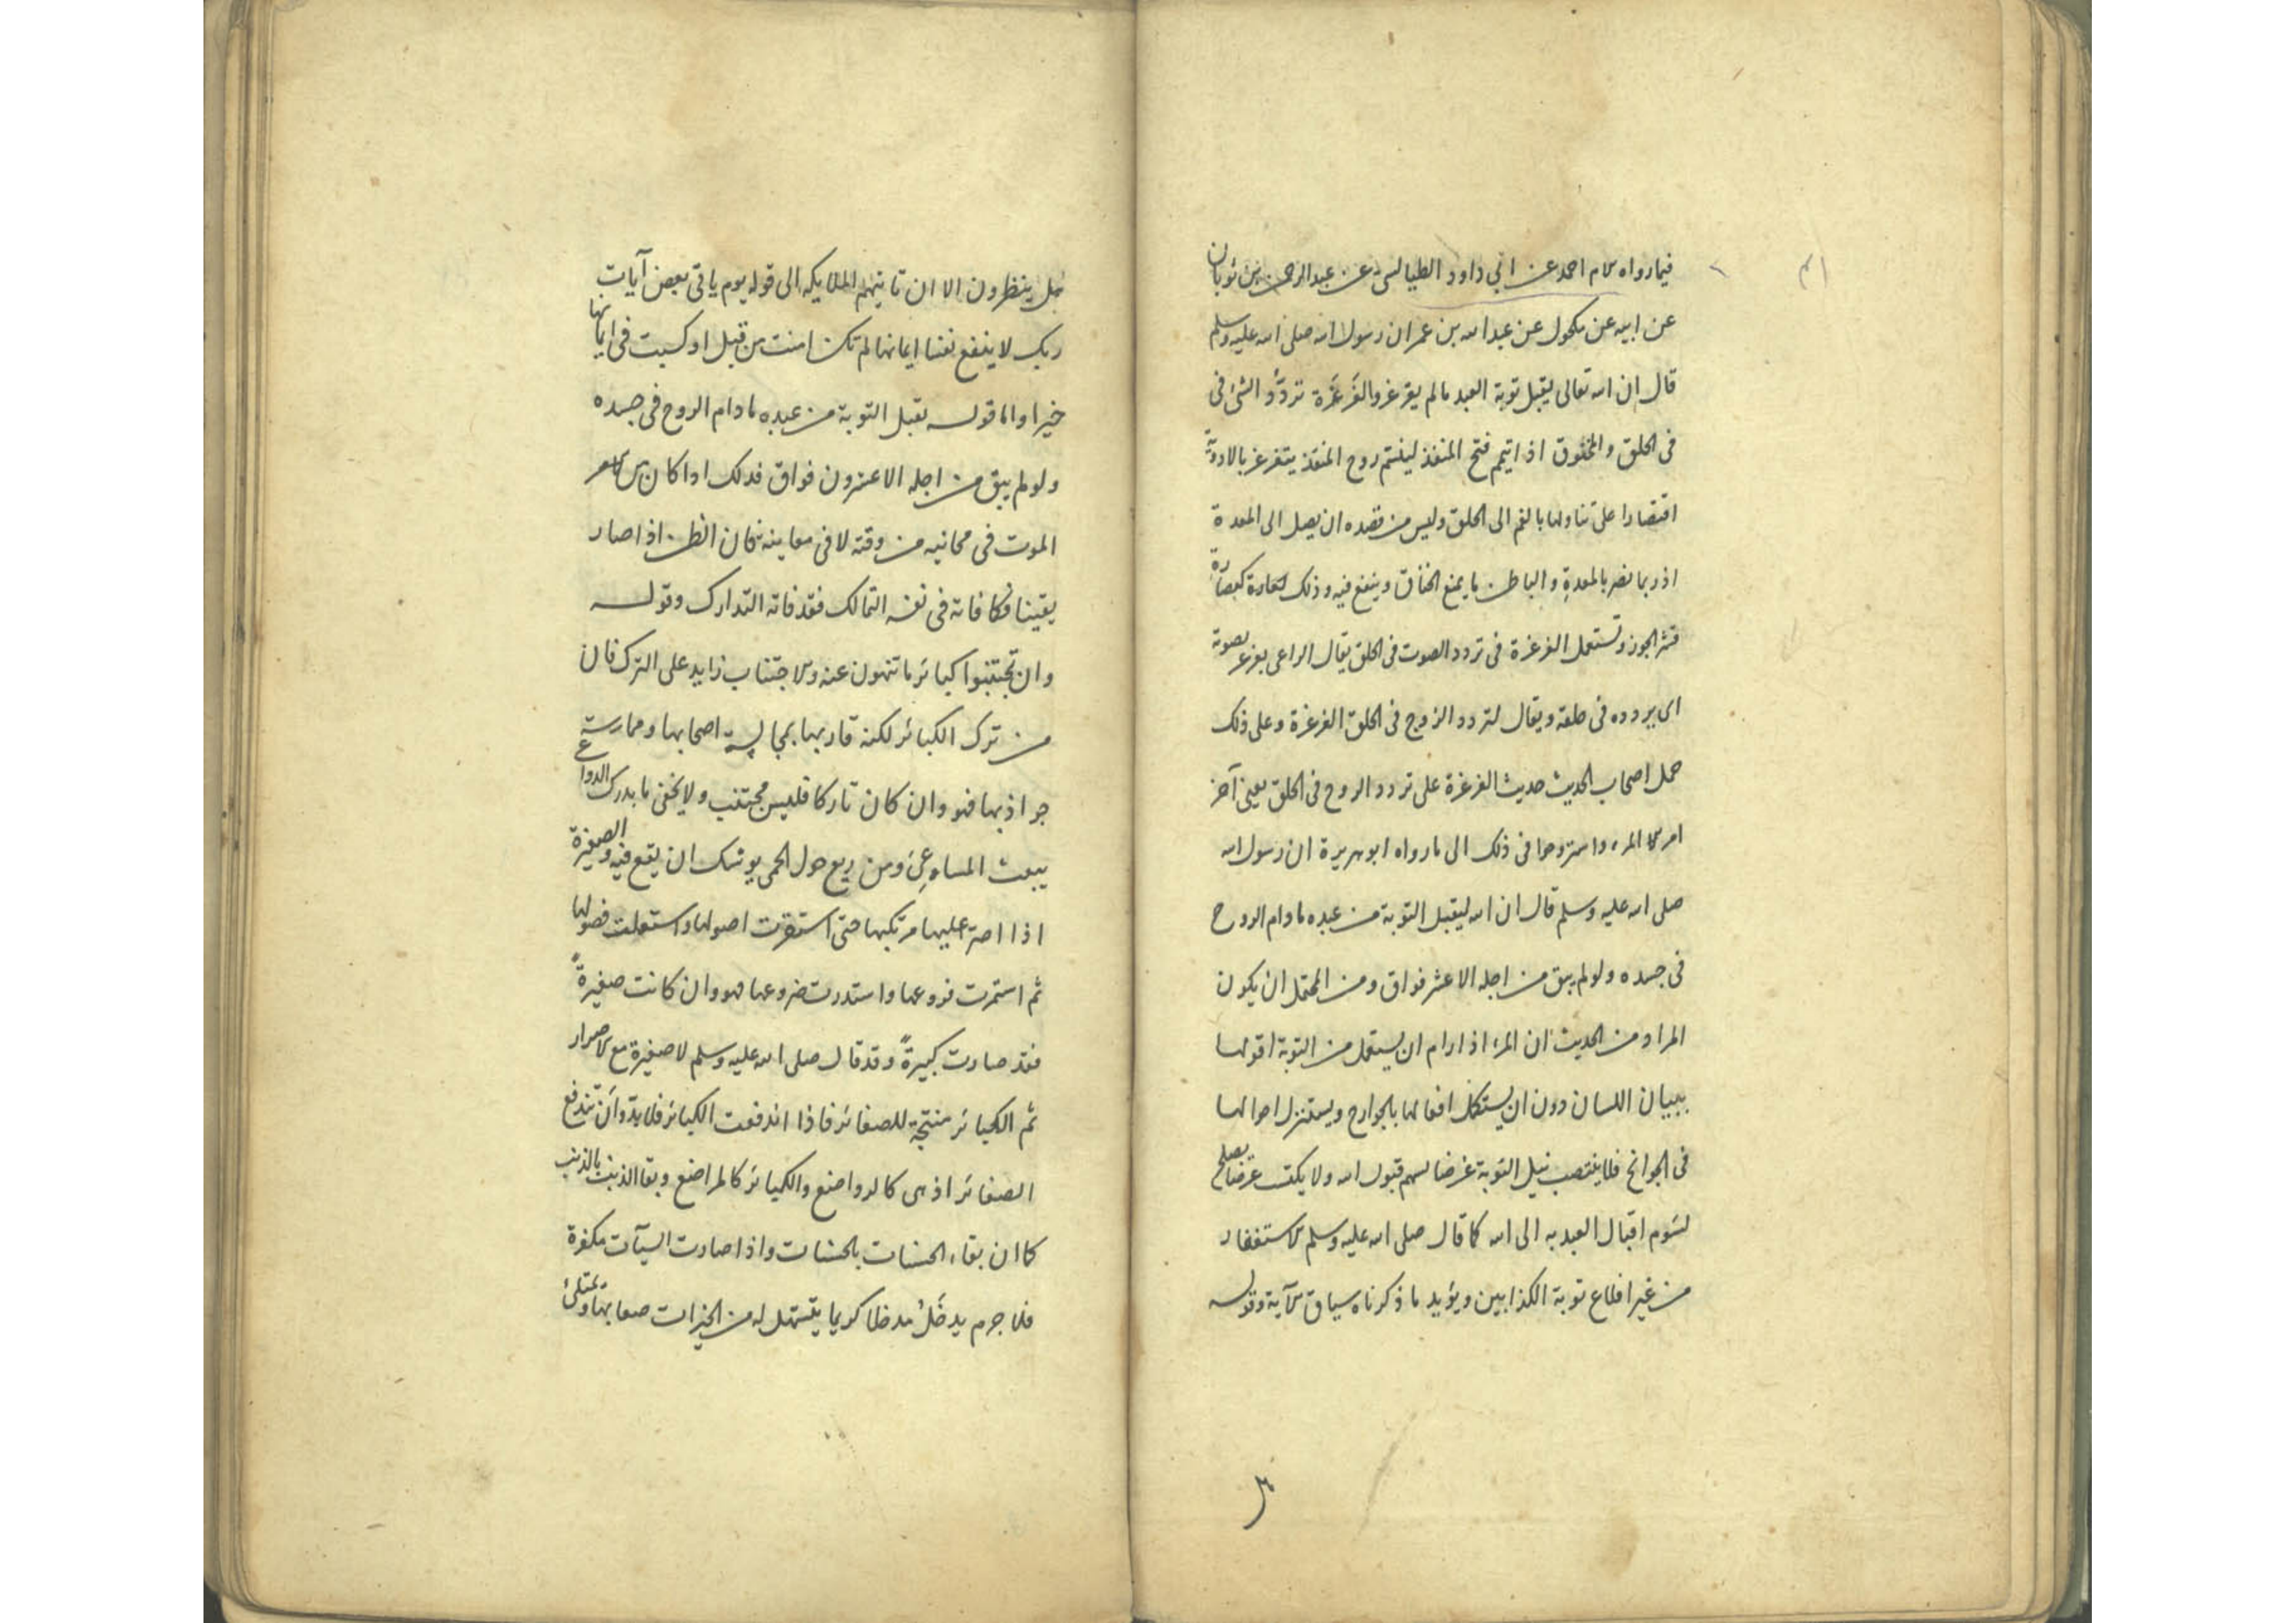 فيما رواه الامام احمد عن ابي داود الطيالسي عن عبد الرحمن بن ثوبان
عن ابيه عن مكحول عن عبد الله بن عمر ان رسول الله صلى الله عليه وسلم
قال ان الله تعالى يقبل توبة العبد ما لم يغرغر والغَرغَرة تردُّد الشئ فى
فى الحلق و المخنوق اذا تيمم فتح المنفذ يتغرغر بالادوية
اقتصارا على تناولها بالفم الى الحلق وليس من قصده ان يصل الى المعدة
اذ ربما تضر بالمعدة والباطن ما يمنع الخناق وينفع فيه وذلك كعصارة
قشر الجوز وتستعمل الغرغرة فى تردد الصوت فى الحلق يقال الراعى يغرغر بصوته
اى يردده فى حلقه ويقال لتردد الروح فى الحلق الغرغرة وعلى ذلك
حمل اصحاب الحديث حديث الغرغرة على تردد الروح فى الحلق يعنى آخر
امر المرء واستروحوا فى ذلك الى ما رواه ابو هريرة ان رسول الله
صلى الله عليه وسلم قال ان الله ليقبل التوبة من عبده ما دام الروح
فى جسده ولو لم يبق من اجله الا عشر فواق ومن المحتمل ان يكون
المراد من الحديث ان المرء اذا رام ان يستعمل من التوبة اقوالها
ببيان اللسان دون ان يستكمل افعالها بالجوارح ويستنزل احوالها
فى الجوانح فلا ينتصب نيل التوبة غرضا لسهم قبول الله ولا يكتسب عرضا يصلح
لسَوم اقبال العبد به الى الله كما قال صلى الله عليه وسلم الاستغفار
من غير اقلاع توبة الكذابين ويؤيد ما ذكرناه سياق الآية وقوله
٣
هل ينظرون الا ان تاتيهم الملايكه الى قوله يوم ياتى بعض آيات
ربك لا ينفع نفسا ايمانها لم تكن امنت من قبل او كسبت فى ايمانها
خيرا واما قوله يقبل التوبة من عبده ما دام الروح فى جسده
ولو لم يبق من اجله الا عشرون فواق فذلك اذا كان
الموت فى من وقته لا فى معاينه فكان الظن اذا صار
يقينا فكافاته فى نفسه التمالك فقد فاته التدارك وقوله
وان تجتنبوا كبائر ما تنهون عنه والاجتناب زايد على الترك فان
من ترك الكبائر لكنه قاربها بمجالسة اصحابها وممارسة
جواذبها فهو وان كان تاركا فليس مجتنب ولا يخفى ما يدرك الدواعى
ومن ريع حول الحمى يوشك ان يقع فيه والصغيرة
اذا اصرّ عليها مرتكبها حتى استقرت اصولها واستعلت فصولها
ثم استمرت فروعها واستدرت ضروعها فهو وان كانت صغيرةً
فقد صارت كبيرةً وقد قال صلى الله عليه وسلم لا صغيرة مع الاصرار
ثم الكبائر منتجة للصغائر فاذا اندفعت الكبائر فلا بدّ وان تندفع
الصغائر اذ هى كالرواضع والكبائر كالمراضع وبقا الذنب بالذنب
كما ان بقاء الحسنات بالحسنات واذا صارت السيآت مكفرة
فلا جرم يدخَلُ مدخلا كريما يتسهل له من الخيرات صعابها